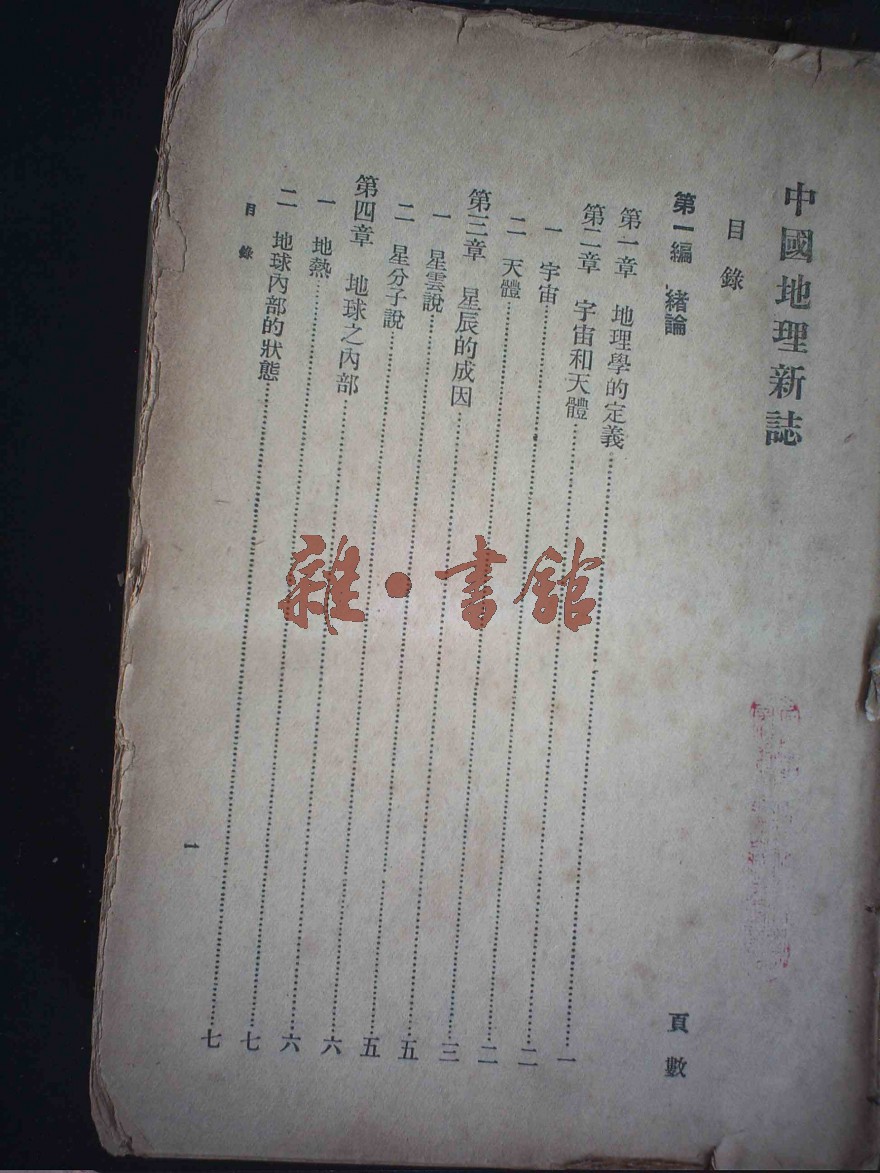 中國地理新誌
目錄
第一編 緒論 頁數
第一章 地理學的定義……一
第二章 宇宙和天體……二
一 宇宙……二
二 天體……三
第三章 星辰的成因……五
一 星雲說……五
二 星分子說……六
第四章 地球之內部……六
一 地熱……七
二 地球內部的狀態……七
目錄
一
雜·書館